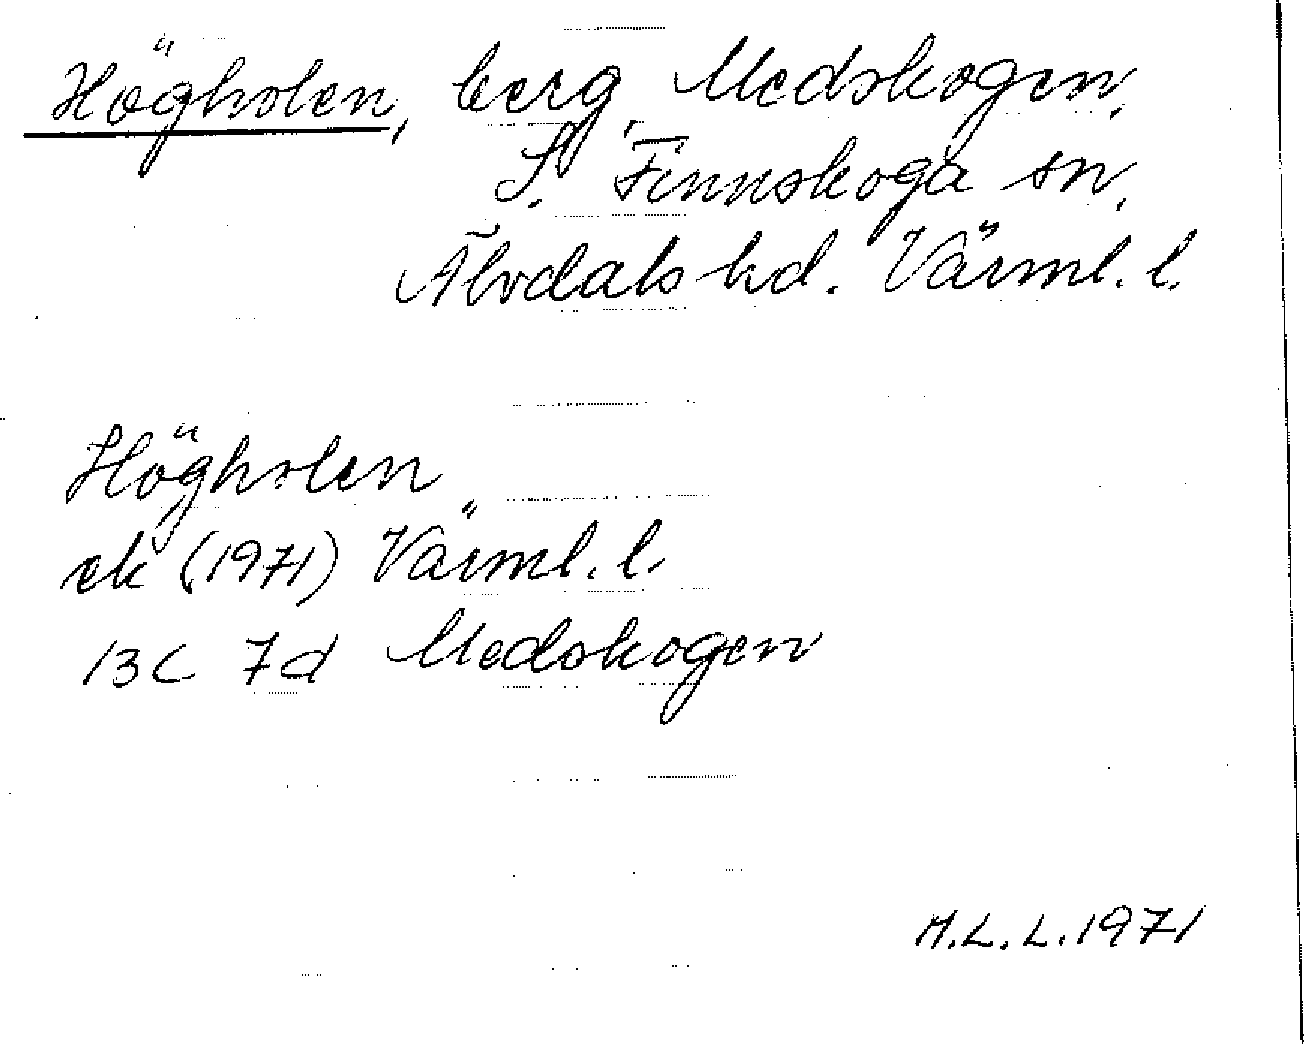 Högholen, berg, Medskogen,
S. Finnskoga sn,
Älvdals hd. Värml. l.
Högholen
ek (1971) Värml. l.
13C 7d Medskogen
M.L.L. 1971